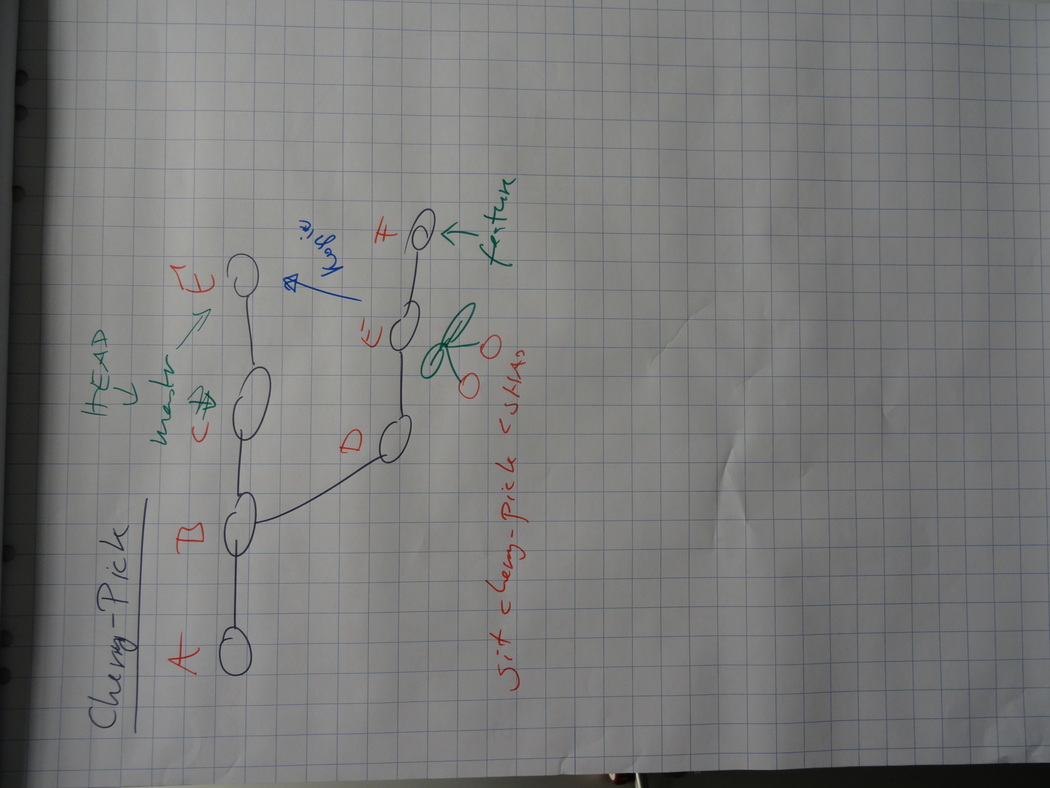 Cherry-Pick
HEAD
master
A B C E'
Kopie
D E F
feature
git cherry-pick <SHA>